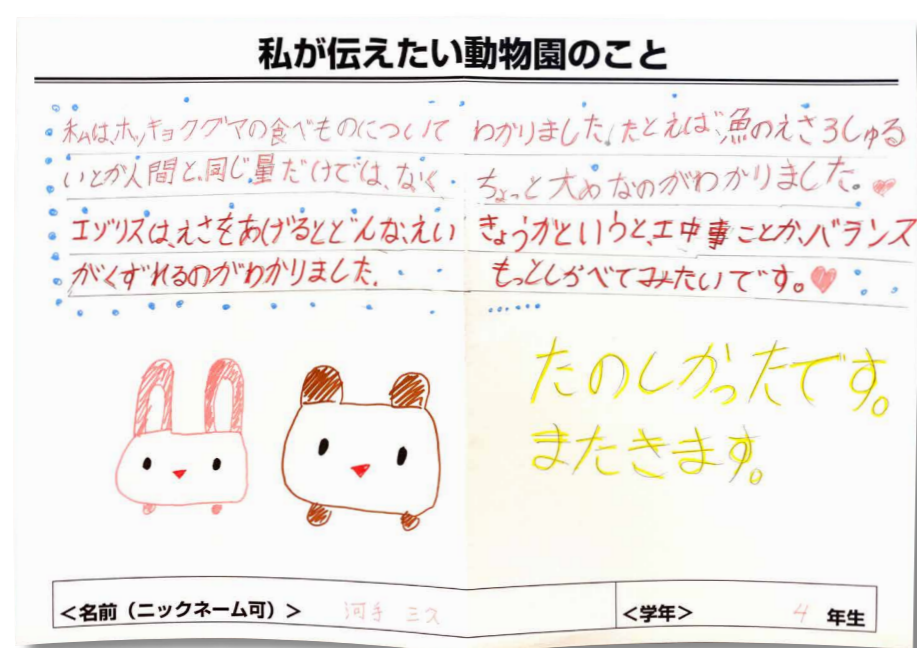 私が伝えたい動物園のこと
私は、ホッキョクグマの食べものについて わかりました。たとえば、魚のえさ3しゅる
いとが人間と、同じ量だけでは、なく ちょっと大めなのがわかりました。
エゾリスは、えさをあげるとどんな、えい きょうがというと、エ中事ことか、バランス
がくずれるのがわかりました。 もっとしらべてみたいです。
たのしかったです。
またきます。
<名前(ニックネーム可)> 河手 ミス
<学年> 4 年生